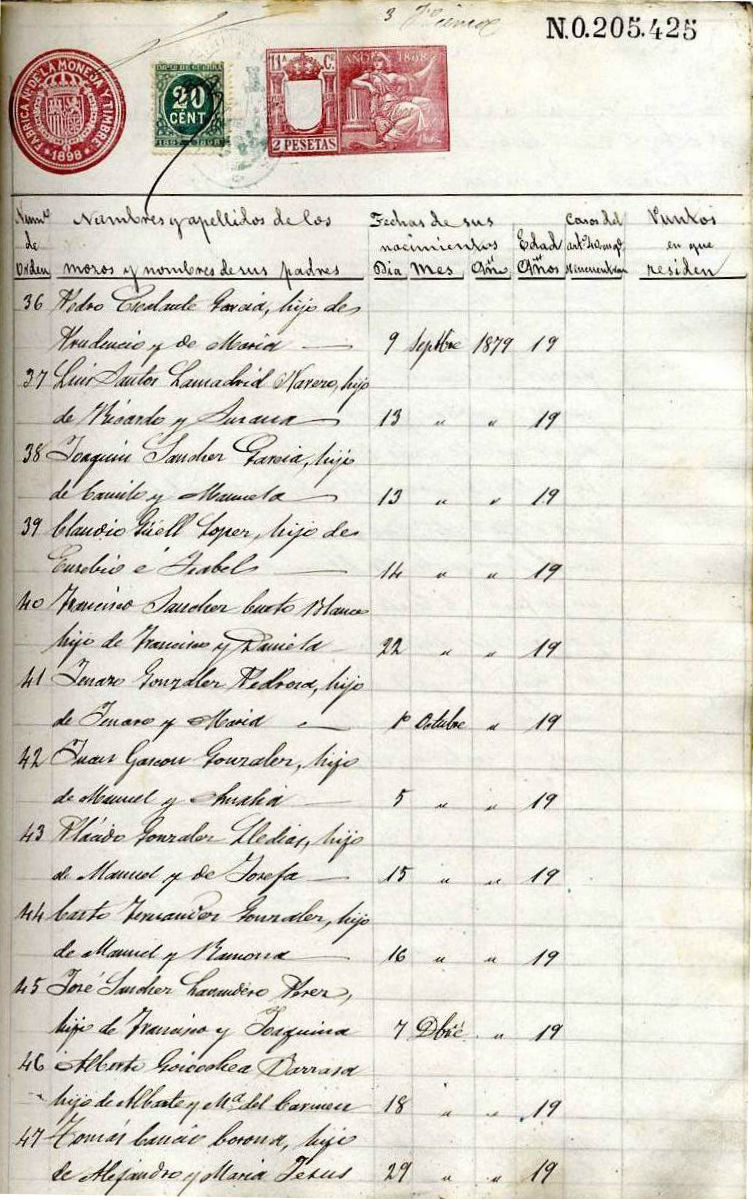 3
N.0.205.425
FÁBRICA NAL DE LA MONEDA Y TIMBRE
*1898*
IMPTO DE GUERRA
20
CENT
1897-1898
11ª C.
AÑO 1898
2 PESETAS
Numº de Orden
Nombres y apellidos de los mozos y nombres de sus padres
Fechas de sus nacimientos
Dia Mes Año
Edad Años
Casos del artº 40 en qe
Puntos en que residen
36 Pedro Escalante Garcia, hijo de
Prudencio y de Maria 9 Septbre 1879 19
37 Luis Santos Lamadrid Navero, hijo
de Ricardo y Susana 13 " " 19
38 Joaquin Sanchez Garcia, hijo
de Camilo y Manuela 13 " " 19
39 Claudio Güell Lopez, hijo de
Eusebio é Isabel 14 " " 19
40 Francisco Sanchez Cueto Blanco
hijo de Francisco y Daniela 22 " " 19
41 Jenaro Gonzalez Pedrosa, hijo
de Jenaro y Maria 1º Octubre " 19
42 Juan Gascon Gonzalez, hijo
de Manuel y Amalia 5 " " 19
43 Plácido Gonzalez Lledias, hijo
de Manuel y de Josefa 15 " " 19
44 Casto Fernandez Gonzalez, hijo
de Manuel y Ramona 16 " " 19
45 José Sanchez Lavandero Perez,
hijo de Francisco y Joaquina 7 Dbre " 19
46 Alberto Goicochea Barrasa
hijo de Alberto y Mª del Carmen 18 " " 19
47 Tomás Cancio Corona, hijo
de Alejandro y Maria Jesus 29 " " 19